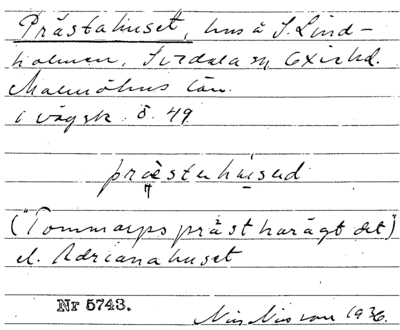 Prästahuset, hus å S. Lind-
holmen, Svedala sn, Oxie hd.
Malmöhus län.
i vägsk. ö. 49
prästuhused
("Tommarps präst har ägt det")
el. Adrianahuset
Nr 5743.
Nils Nilsson 1936.